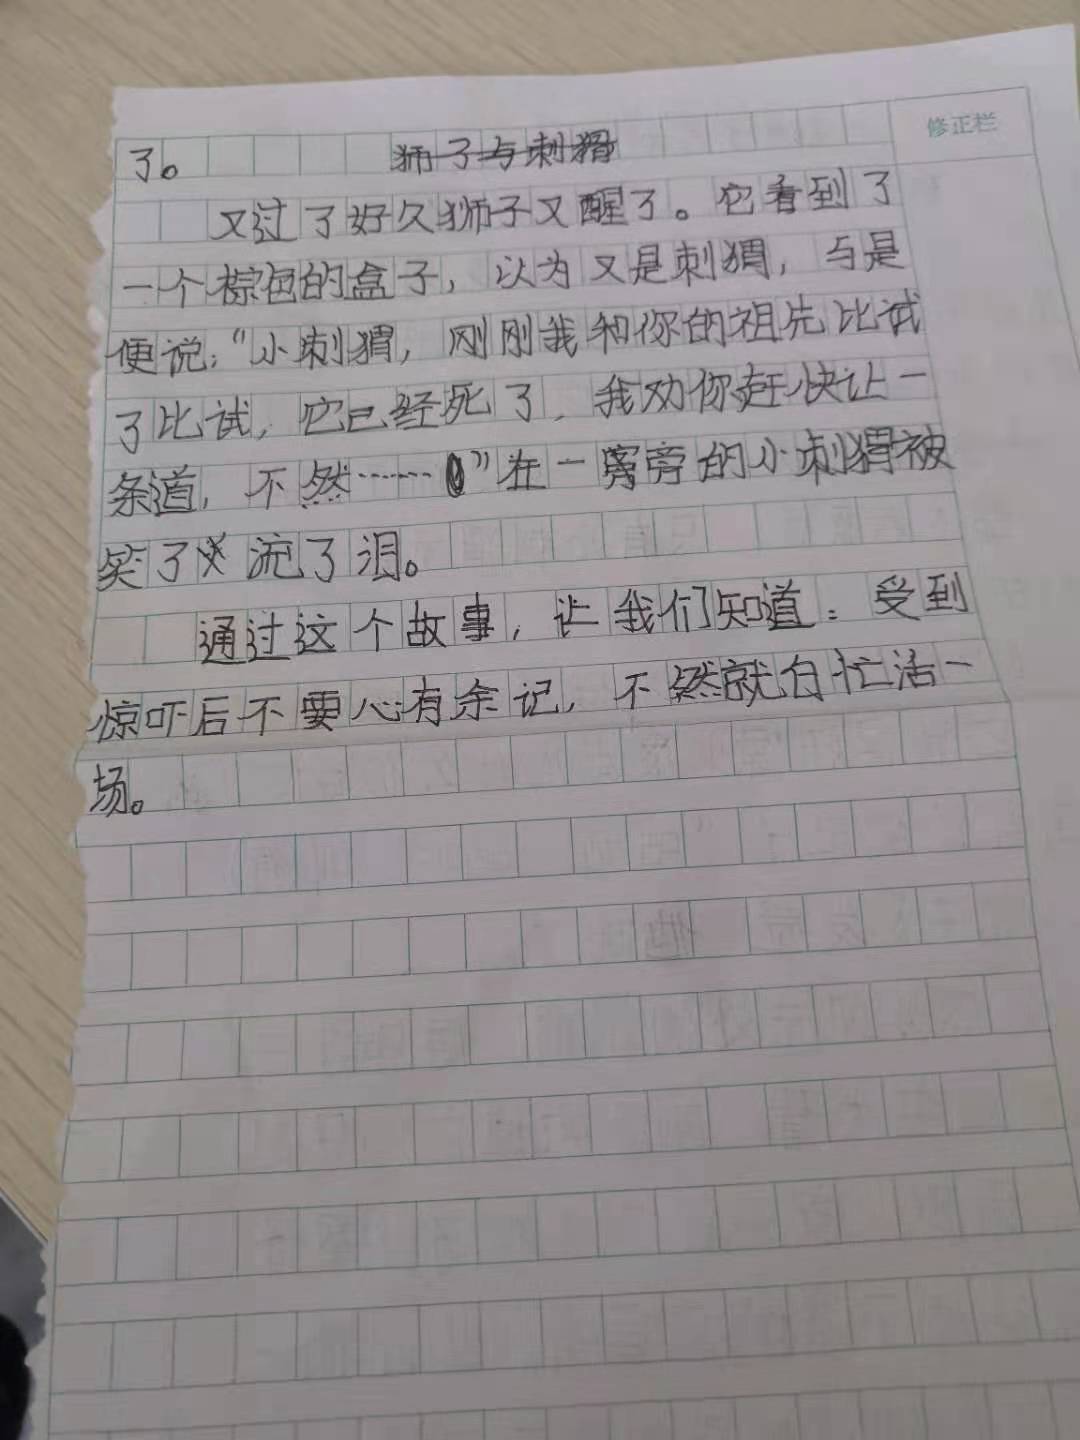 修正栏
了。 狮子与刺猬
又过了好久狮子又醒了。它看到了
一个棕色的盒子，以为又是刺猬，与是
便说："小刺猬，刚刚我和你的祖先比试
了比试，它已经死了，我劝你赶快让一
条道，不然……"在一旁的小刺猬被
笑了流了泪。
通过这个故事，让我们知道：受到
惊吓后不要心有余记，不然就白忙活一
场。